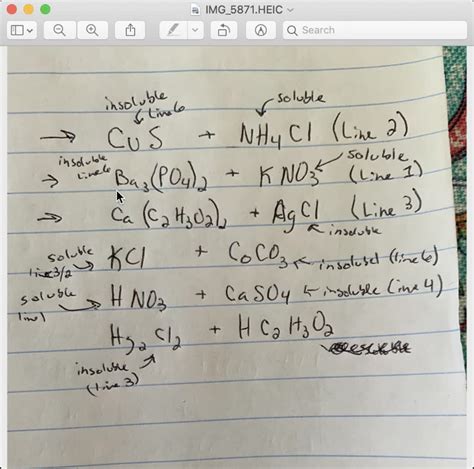 IMG_5871.HEIC
Search
insoluble
Line 6
soluble
→ CuS + NH4Cl (Line 2)
insoluble
Line 6
soluble
→ Ba3(PO4)2 + KNO3 (Line 1)
→ Ca(C2H3O2)2 + AgCl (Line 3)
insoluble
soluble
line 3/2
KCl + CoCO3 insolubel (line 6)
soluble
line 1
HNO3 + CaSO4 insoluble (line 4)
Hg2Cl2 + HC2H3O2
insoluble
(line 3)